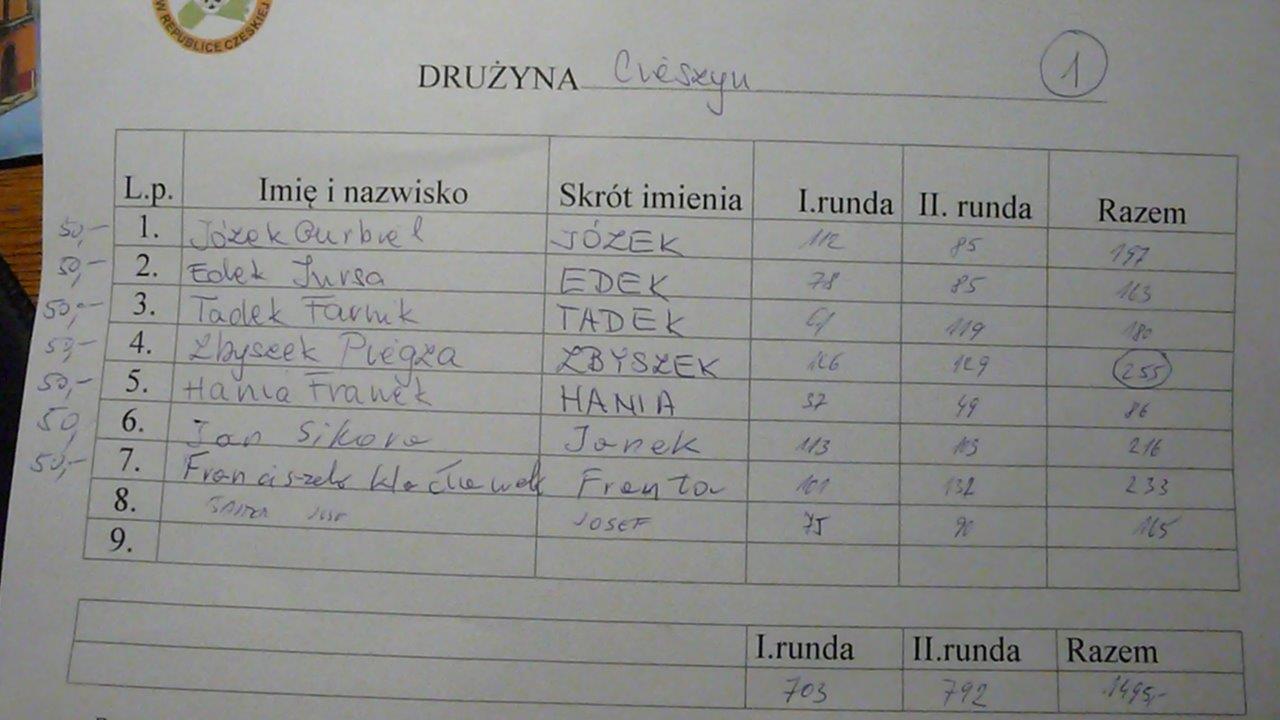 W REPUBLICE CZESKIEJ
DRUŻYNA Cieszyn 1
L.p. Imię i nazwisko Skrót imienia I.runda II. runda Razem
50,- 1. Józek Gurbiel JÓZEK 112 85 197
50,- 2. Edek Jursa EDEK 78 85 163
50,- 3. Tadek Farnik TADEK 61 119 180
50,- 4. Zbyszek Piegza ZBYSZEK 126 129 255
50,- 5. Hania Franek HANIA 37 49 86
50, 6. Jan Sikora Janek 113 103 216
50,- 7. Franciszek Franta 101 132 233
8. JOSEF 75 90 165
9.
I.runda II.runda Razem
703 792 1495,-